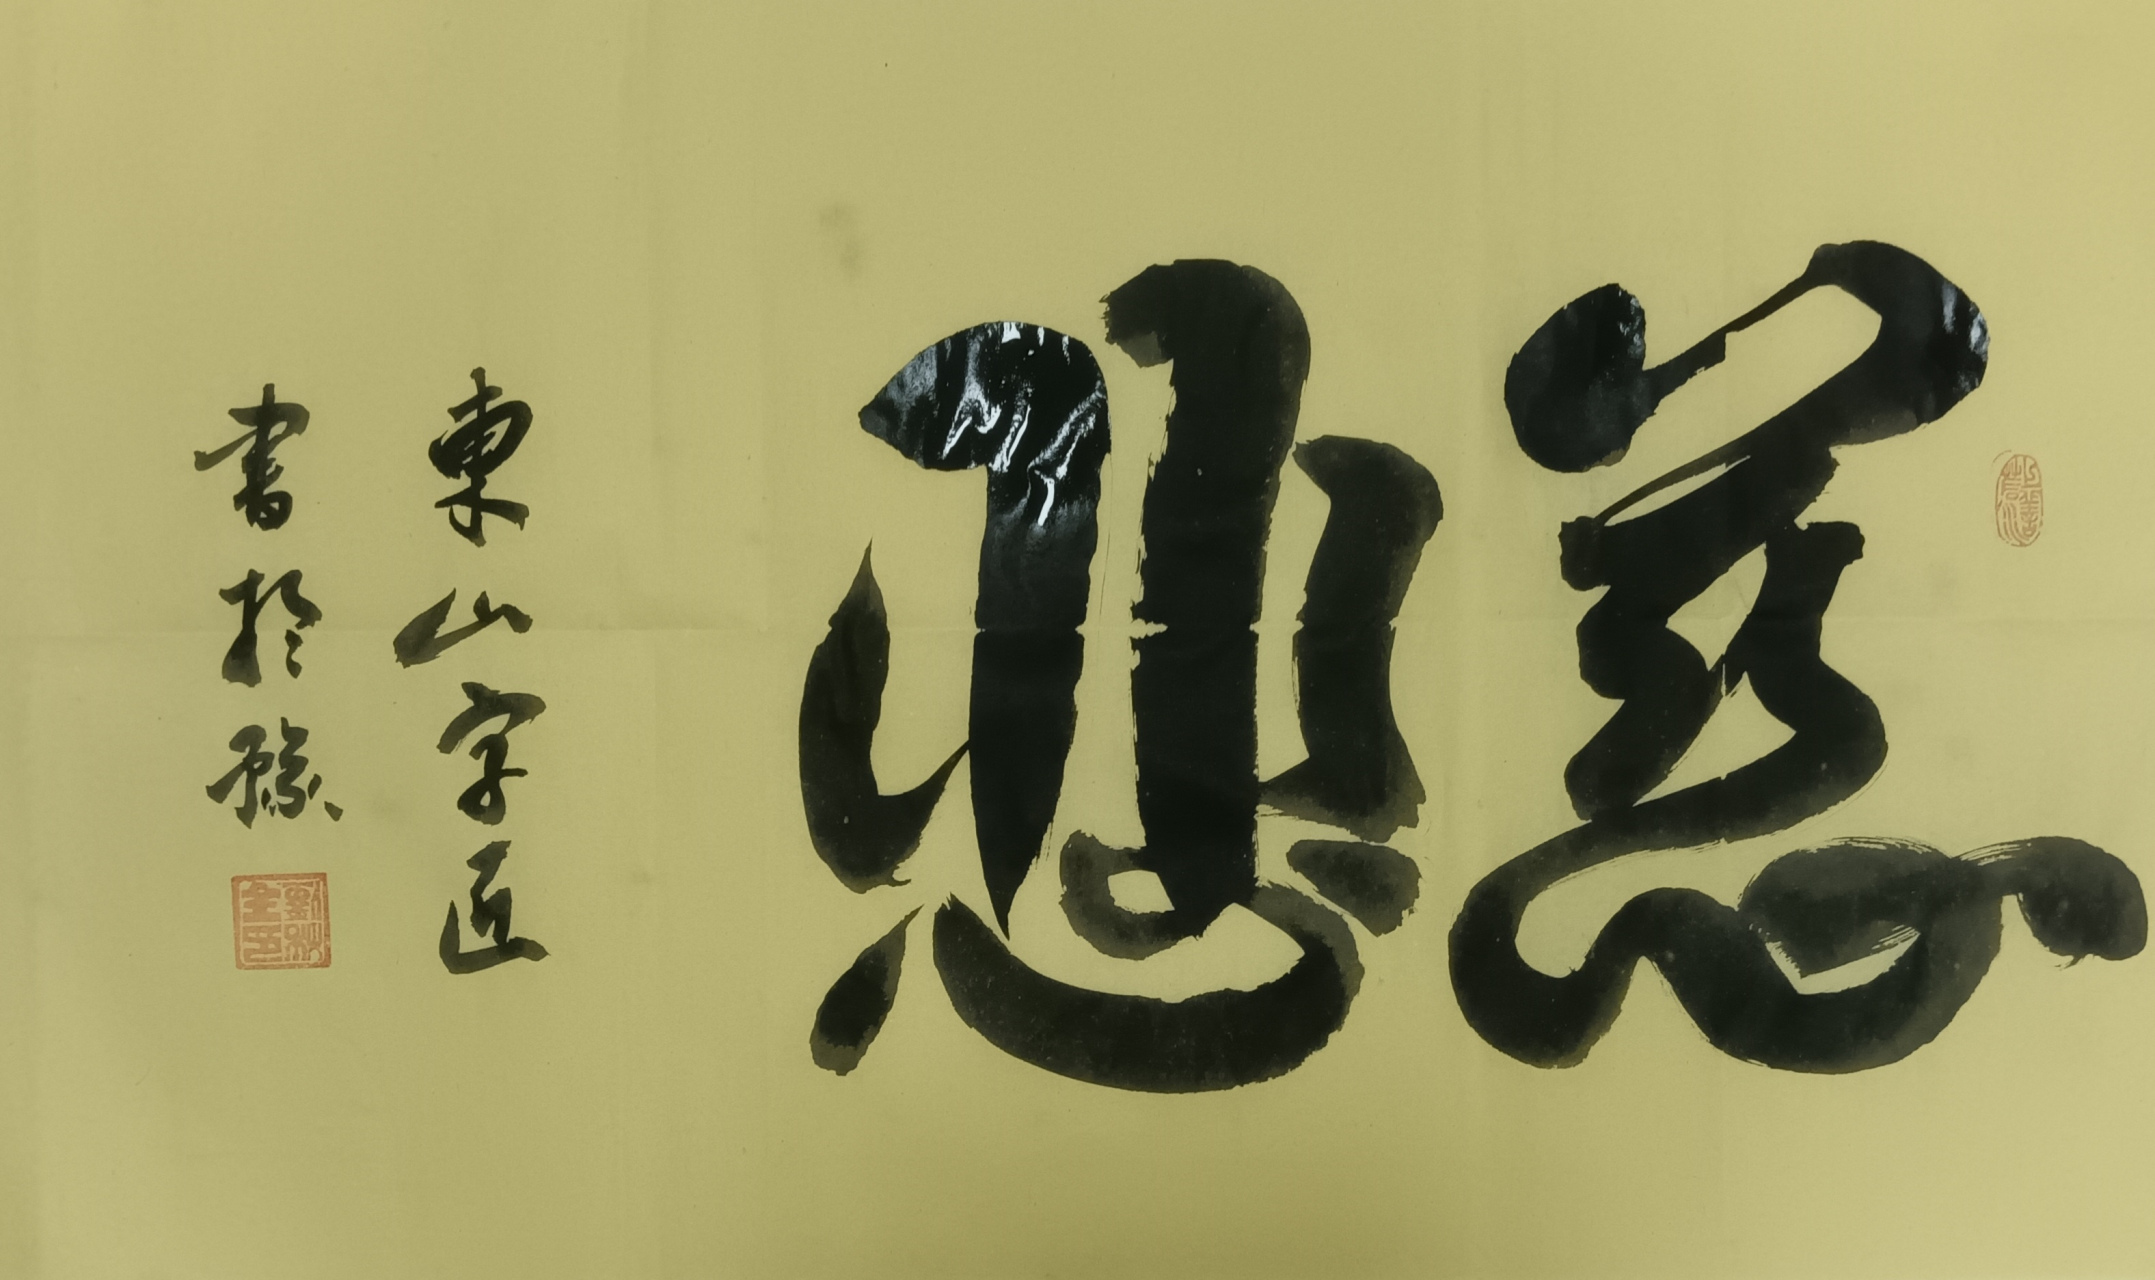 慈悲
東山字匠
書於豫